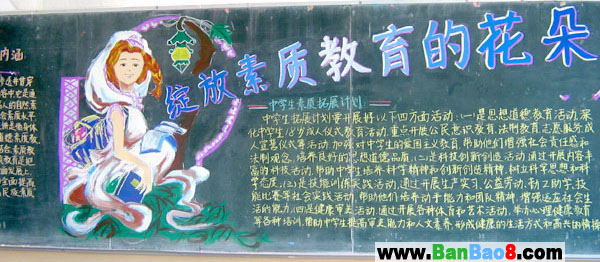 绽放素质教育的花朵
内涵
中学生素质拓展计划
中学生拓展计划要开展好以下四方面活动:一是思想道德教育活动,深
化中学生18岁成人仪式教育活动,重点开展公民意识教育、法制教育、志愿服务、成
人宣誓仪式等活动,加强对中学生的爱国主义教育,帮助他们增强社会责任感和
法制观念,培养良好的思想道德品质,(二)是科技创新创造活动,通过开展内容丰
富的科技活动,帮助中学生培养科学精神和创新创造精神,树立科学思想和科
学态度,(三)是技能训练实践活动,通过开展生产实习、公益劳动、勤工助学、技
能比赛等社会实践活动,帮助他们培养动手能力和团队精神,增强适应社会生
活的能力,四是健康审美活动,通过开展各种体育和艺术活动,举办心理健康教育
等各种培训,帮助中学生提高审美能力和人文素养,形成健康的生活方式和高尚的情操
www.BanBao8.com